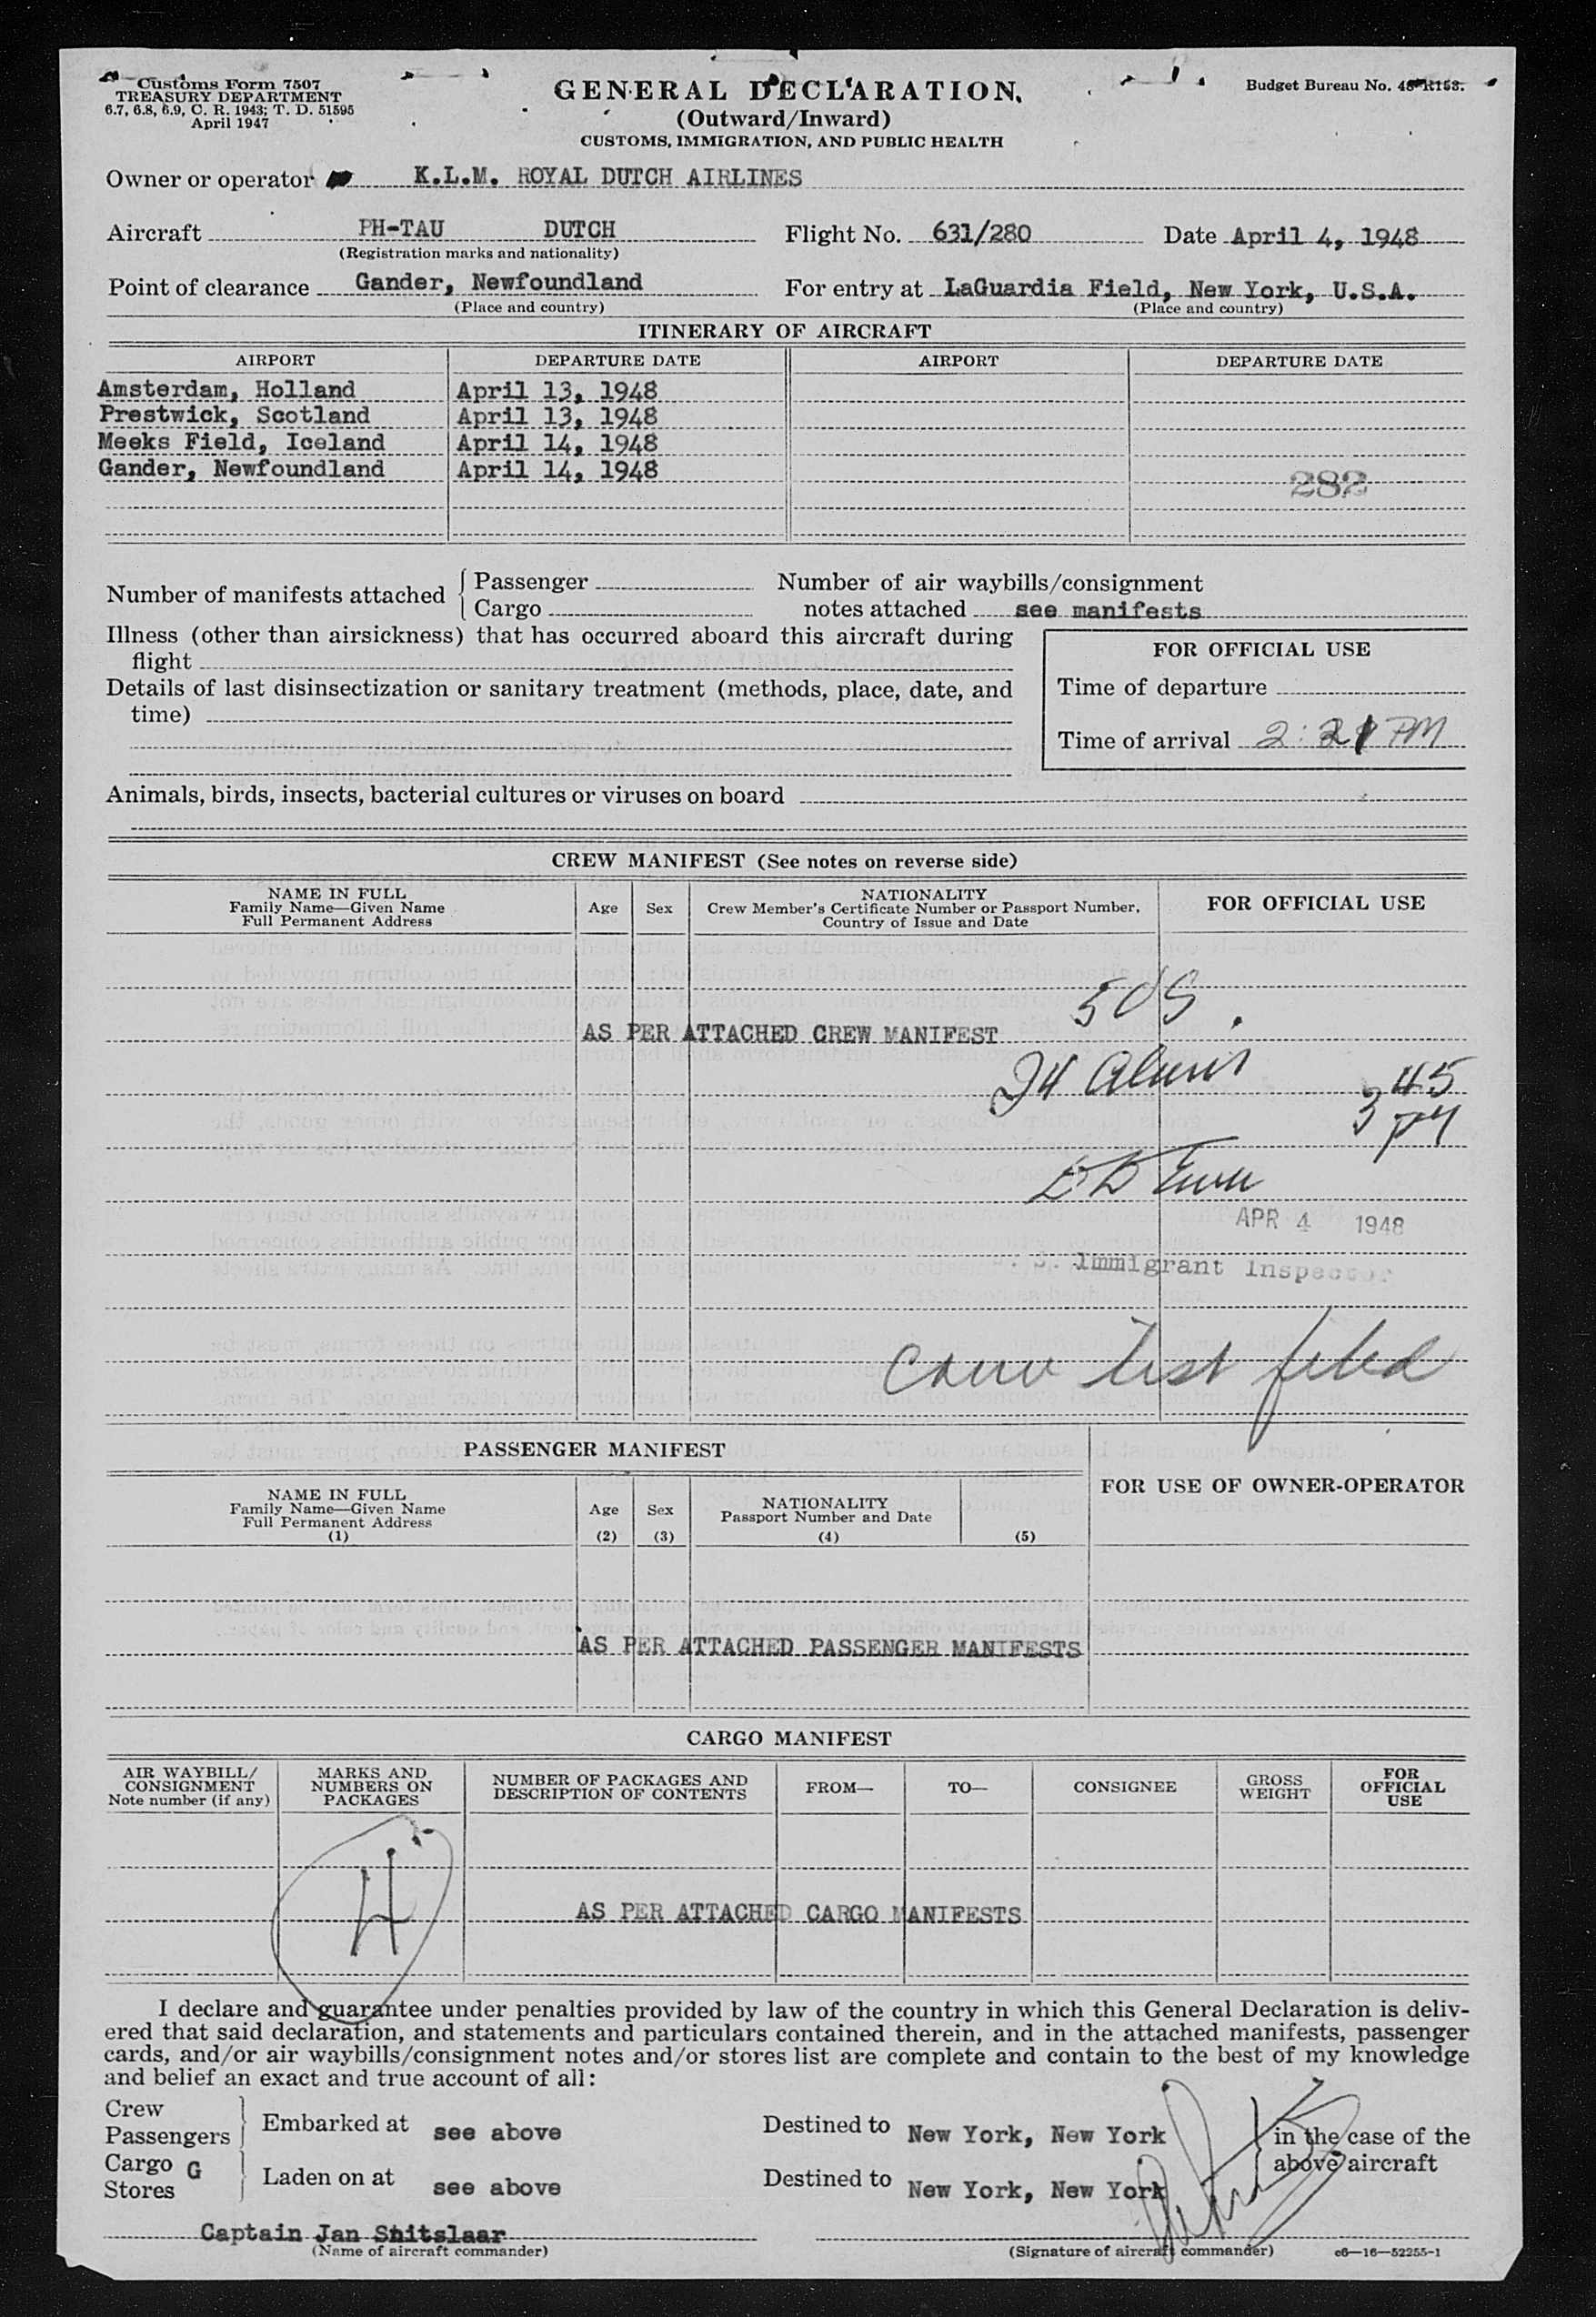 Customs Form 7507
TREASURY DEPARTMENT
6.7, 6.8, 6.9, C. R. 1943; T. D. 51595
April 1947
GENERAL DECLARATION
(Outward/Inward)
CUSTOMS, IMMIGRATION, AND PUBLIC HEALTH
Budget Bureau No.
Owner or operator K.L.M. ROYAL DUTCH AIRLINES
Aircraft PH-TAU DUTCH Flight No. 631/280 Date April 4, 1948
(Registration marks and nationality)
Point of clearance Gander, Newfoundland For entry at LaGuardia Field, New York, U.S.A.
(Place and country) (Place and country)
ITINERARY OF AIRCRAFT
AIRPORT DEPARTURE DATE AIRPORT DEPARTURE DATE
Amsterdam, Holland April 13, 1948
Prestwick, Scotland April 13, 1948
Meeks Field, Iceland April 14, 1948
Gander, Newfoundland April 14, 1948
282
Number of manifests attached { Passenger Number of air waybills/consignment
Cargo notes attached see manifests
Illness (other than airsickness) that has occurred aboard this aircraft during
flight
FOR OFFICIAL USE
Details of last disinsectization or sanitary treatment (methods, place, date, and
time)
Time of departure
Time of arrival 2:21 PM
Animals, birds, insects, bacterial cultures or viruses on board
CREW MANIFEST (See notes on reverse side)
NAME IN FULL
Family Name—Given Name
Full Permanent Address
Age Sex
NATIONALITY
Crew Member's Certificate Number or Passport Number,
Country of Issue and Date
FOR OFFICIAL USE
AS PER ATTACHED CREW MANIFEST
345
APR 4 1948
Immigrant Inspector
Crew list filed
PASSENGER MANIFEST
FOR USE OF OWNER-OPERATOR
NAME IN FULL
Family Name—Given Name
Full Permanent Address
(1)
Age
(2)
Sex
(3)
NATIONALITY
Passport Number and Date
(4) (5)
AS PER ATTACHED PASSENGER MANIFESTS
CARGO MANIFEST
AIR WAYBILL/
CONSIGNMENT
Note number (if any)
MARKS AND
NUMBERS ON
PACKAGES
NUMBER OF PACKAGES AND
DESCRIPTION OF CONTENTS
FROM—
TO—
CONSIGNEE
GROSS
WEIGHT
FOR
OFFICIAL
USE
H
AS PER ATTACHED CARGO MANIFESTS
I declare and guarantee under penalties provided by law of the country in which this General Declaration is deliv-
ered that said declaration, and statements and particulars contained therein, and in the attached manifests, passenger
cards, and/or air waybills/consignment notes and/or stores list are complete and contain to the best of my knowledge
and belief an exact and true account of all:
Crew
Passengers } Embarked at see above Destined to New York, New York in the case of the
above aircraft
Cargo G
Stores } Laden on at see above Destined to New York, New York
Captain Jan Snitslaar
(Name of aircraft commander) (Signature of aircraft commander) c6—16—52255-1